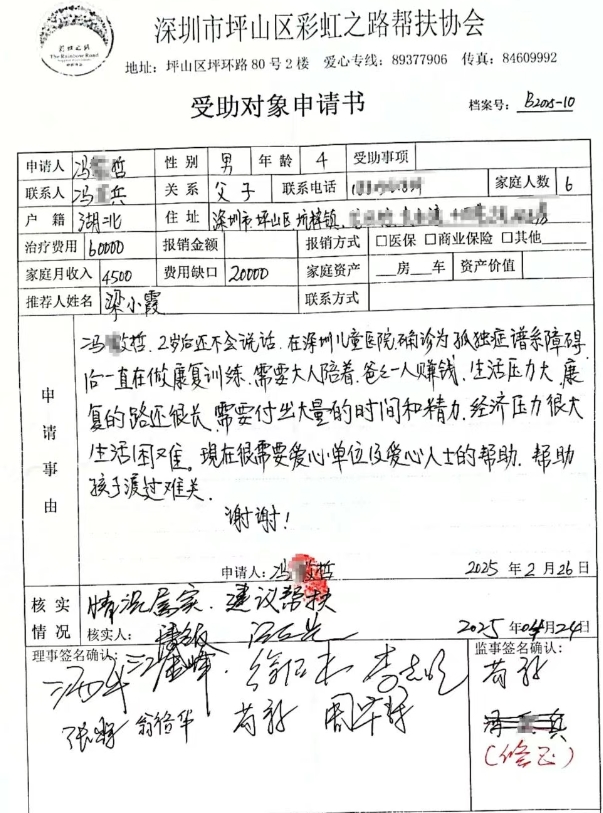 彩虹之路
The Rainbow Road
深圳市坪山区彩虹之路帮扶协会
地址：坪山区坪环路80号2楼 爱心专线：89377906 传真：84609992
受助对象申请书
档案号：B2025-10
申请人 冯 哲 性别 男 年龄 4 受助事项
联系人 冯 兵 关系 父子 联系电话 家庭人数 6
户籍 湖北 住址 深圳市坪山区坑梓镇
治疗费用 60000 报销金额 报销方式 □医保 □商业保险 □其他
家庭月收入 4500 费用缺口 20000 家庭资产 __房__车 资产价值
推荐人姓名 梁小霞 联系方式
申请事由
冯 哲，2岁后还不会说话，在深圳儿童医院确诊为孤独症谱系障碍
后一直在做康复训练，需要大人陪着，爸爸一人赚钱，生活压力大，康
复的路还很长，需要付出大量的时间和精力，经济压力很大
生活困难。现在很需要爱心单位及爱心人士的帮助，帮助
孩子渡过难关。
谢谢！
申请人：冯 哲 2025年2月26日
核实情况
情况属实，建议帮扶
核实人：
2025年04月24日
理事签名确认：
监事签名确认：
(修正)